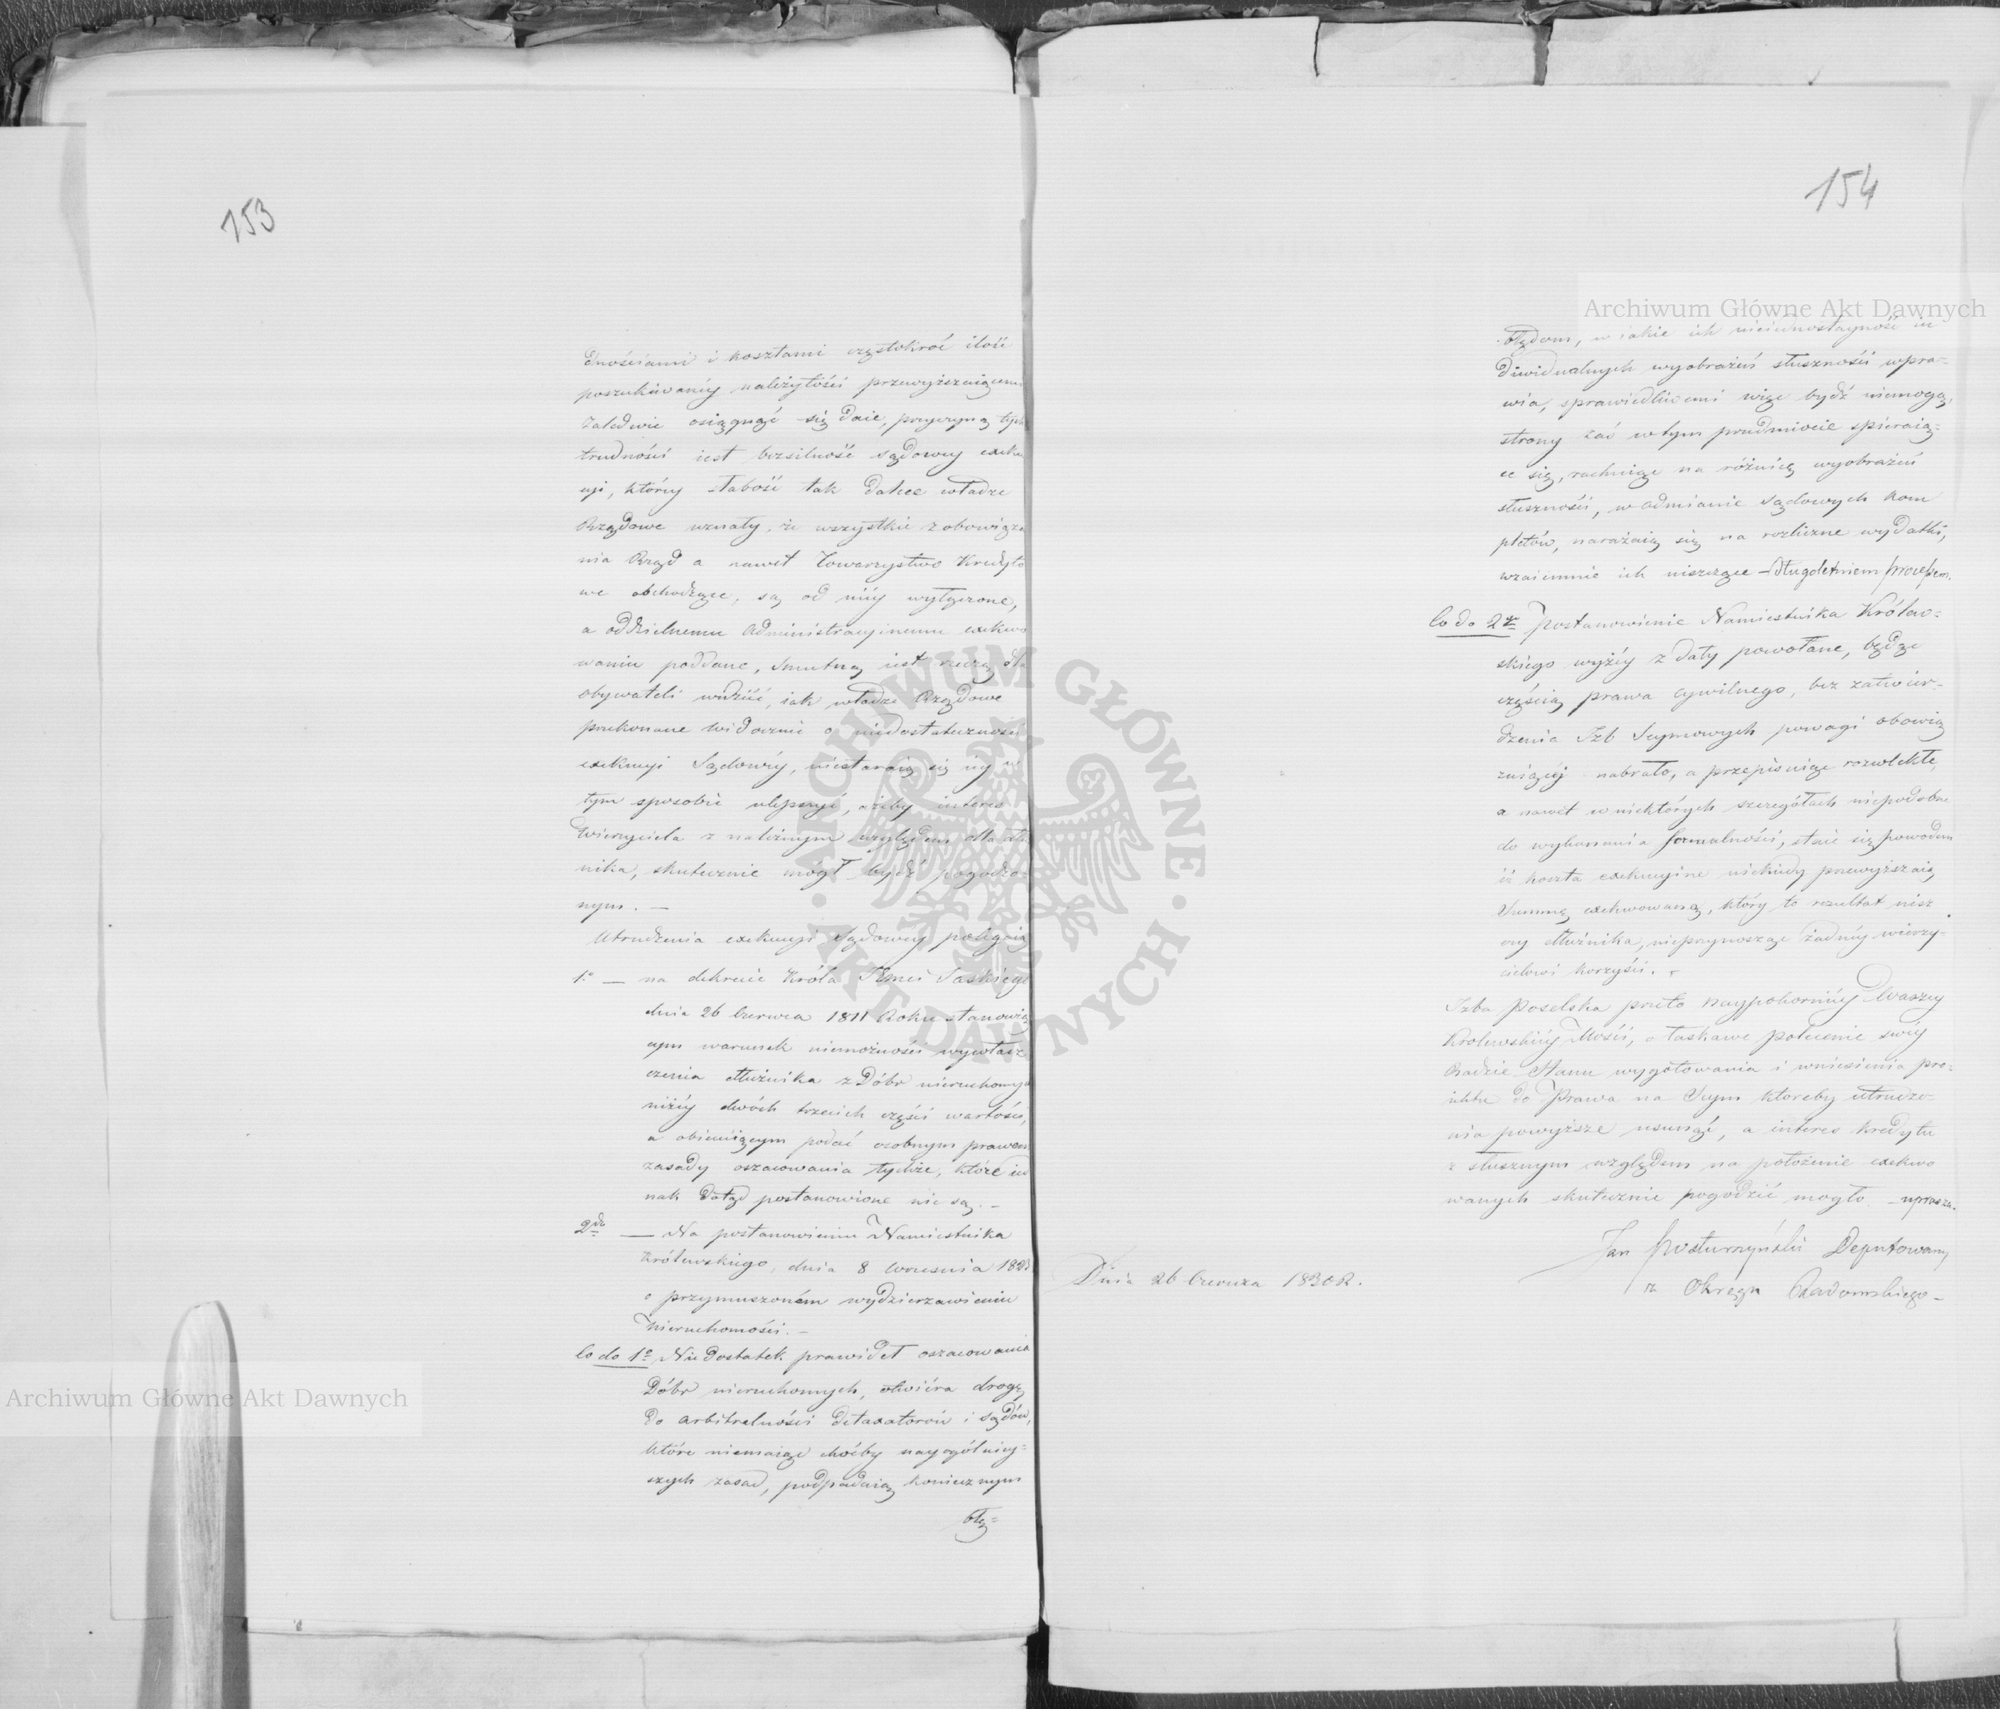 153
dnościami i kosztami częstokroć ilość
poszukiwanéy należytości przewyższaiącemi
zaledwie osiągnąć się daie, przyczyną tych
trudności iest bezsilność sądowey exeku
cyi, którey słabość tak dalece władze
Rządowe uznały, że wszystkie zobowiąza
nia Rząd a nawet Towarzystwo Kredyto
we obchodzące, są od niéy wyłączone,
a oddzielnemu Administracyinemu exekwo
waniu poddane. Smutną iest rzeczą dla
obywateli widzieć, iak władze Rządowe
przekonane widocznie o niedostateczności
exekucyi Sądowéy, niestaraią się iéy w
tym sposobie ulepszyć, ażeby interes
Wierzyciela z należnym względem dla dłu
żnika, skutecznie mógł bydź pogodzo-
nym. —
Utrudzenia exekucyi Sądowey polegaią
1o — na dekrecie Króla JEmci Saskiego
dnia 26 Czerwca 1811 Roku stanowią
cym warunek niemożności wywłasz
czenia dłużnika z Dóbr nieruchomych
niżéy dwóch trzecich części wartości,
a obiecuiącym podać osobnym prawem
zasady oszacowania tychże, które ied
nak dotąd postanowione nie są. —
2do — Na postanowieniu Namiestnika
Królewskiego, dnia 8 Września 1823
o przymuszoném wydzierżawieniu
Nieruchomości. —
Co do 1o Niedostatek prawideł oszacowania
Dóbr nieruchomych, otwiéra drogę
do arbitralności detaxatorów i sądów,
które niemaiąc choćby nayogólniey-
szych zasad, podpadaią koniecznym
błę=
154
błędom, w iakie ich nieiednostayność in
dywidualnych wyobrażeń słuszności wpra-
wia, sprawiedliwemi więc bydź niemogą,
strony zaś w tym przedmiocie spieraią-
ce się, rachuiąc na różnicę wyobrażeń
słuszności, w odmianie sądowych kom
pletów, narażaią się na rozliczne wydatki,
wzaiemnie ich niszczące długoletniem processem.
Co do 2o Postanowienie Namiestnika Królew-
skiego wyżéy z daty powołane, będąc
częścią prawa cywilnego, bez zatwier-
dzenia Izb Seymowych powagi obowią
zuiącéy nabrało, a przepisuiąc rozwlekłe,
a nawet w niektórych szczegółach niepodobne
do wykonania formalności, staie się powodem
iż koszta exekucyine niekiedy przewyższaią
Summę exekwowaną, który to rezultat nisz
czy dłużnika, nieprzynosząc żadnéy wierzy-
cielowi korzyści. —
Izba Poselska przeto naypokorniéy Waszey
Królewskiéy Mości, o łaskawe polecenie swéy
Radzie Stanu wygotowania i wniesienia pro-
iektu do Prawa na Seym któreby utrudze-
nia powyższe usunąć, a interes kredytu
z słusznym względem na położenie exekwo
wanych skutecznie pogodzić mogło — uprasza.
Jan Deputowany
z Okręgu Radomskiego —
Dnia 26 Czerwca 1830 R.
Archiwum Główne Akt Dawnych
Archiwum Główne Akt Dawnych
ARCHIWUM GŁÓWNE · AKT DAWNYCH ·